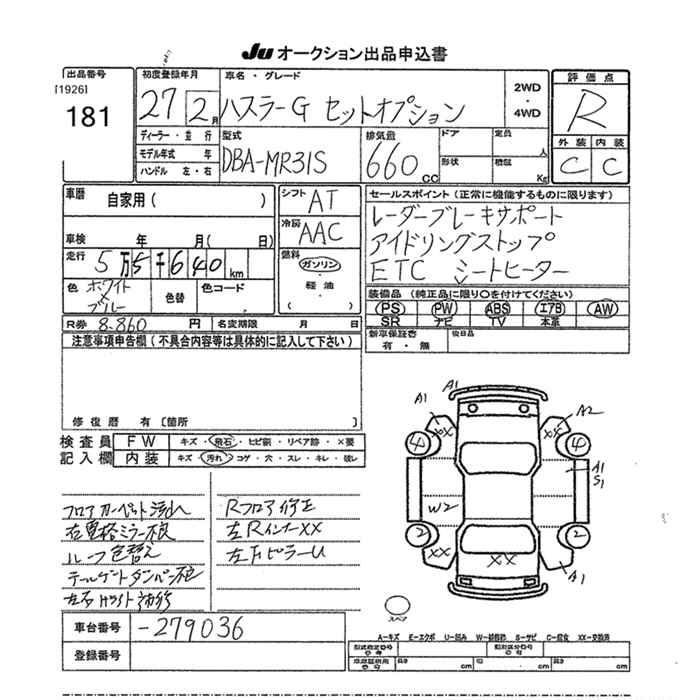 Ju オークション出品申込書
出品番号
[1926]
181
初度登録年月
27 2月
車名・グレード
ハスラーG セットオプション
2WD
・
4WD
評価点
R
ディーラー・並行
モデル年式 年
ハンドル 左・右
型式
DBA-MR31S
排気量
660 CC
ドア
定員 人
形状
積載 Kg
外装 内装
C C
車歴 自家用( )
車検 年 月( 日)
走行 5万5千640 km
色 ホワイト
ブルー
色替
色コード
シフト AT
冷房 AAC
燃料
ガソリン
・
軽油
( )
セールスポイント(正常に機能するものに限ります)
レーダーブレーキサポート
アイドリングストップ
ETC シートヒーター
装備品(純正品に限り○を付けてください)
PS PW ABS エアB AW
SR ナビ TV 本革
新車保証書
有・無
後日品
R券 8.860 円
名変期限 月 日
注意事項申告欄(不具合内容等は具体的に記入して下さい)
修復歴 有[箇所 ]
検査員 FW キズ・飛石・ヒビ割・リペア跡・×要
記入欄 内装 キズ・汚れ・コゲ・穴・スレ・キレ・破レ
フロアカーペット汚れ
右電格ミラー不良
ルーフ色替え
テールゲートダンパー不良
Rフロア修正
左RインナーXX
左FピラーU
A1
A1
A2
XX
XX
4
4
A1
S1
W2
2
2
XX
XX
A1
スペア
車台番号 -279036
登録番号
A-キズ E-エクボ U-凹み W-補修跡 S-サビ C-腐食 XX-交換済
型式指定番号
類別区分番号
長さ cm
巾 cm
高さ cm